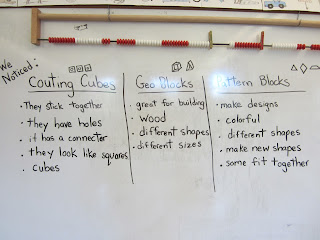 We Noticed:
Couting Cubes
They stick together
they have holes
it has a connecter
they look like squares
cubes
Geo Blocks
great for building
wood
different shapes
different sizes
Pattern Blocks
make designs
colorful
different shapes
make new shapes
some fit together